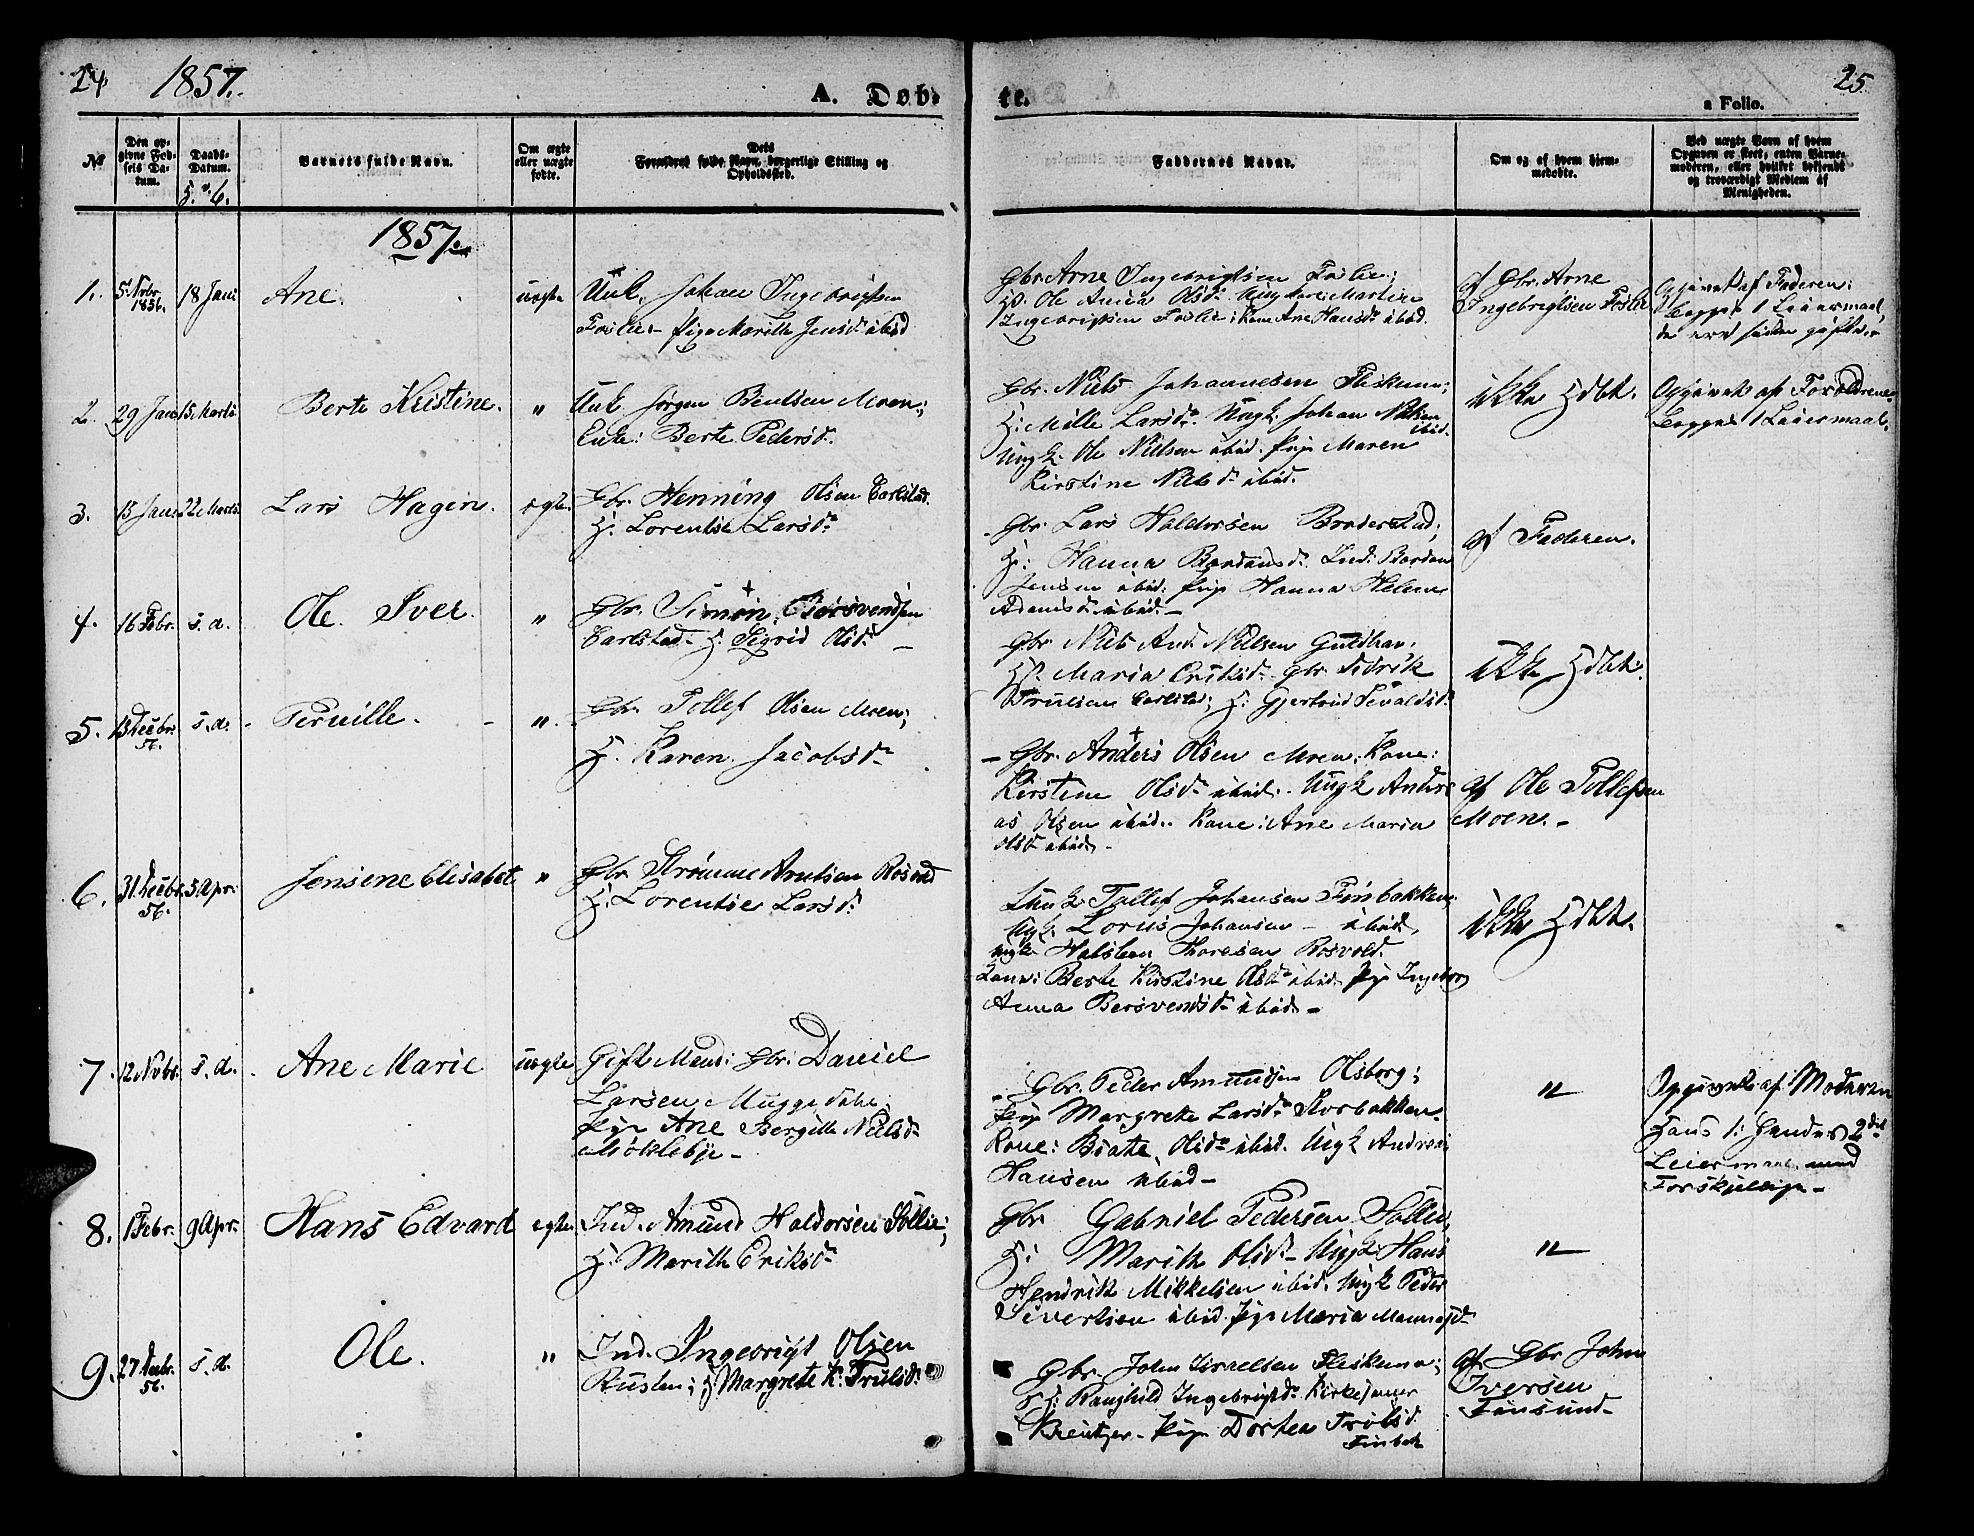 24 1857.
A. Døb-
te.
a Folio.
25
No
Den op-
givne Fød-
sels Da-
tum.
Daabs-
Datum.
Barnets fulde Navn.
Om ægte
eller uægte
fødte.
Dets
Forældres fulde Navn, borgerlige Stilling og
Opholdssted.
Faddernes Navne.
Om og af hvem hjem-
medøbte.
Ved uægte Børn af hvem
Opgaven er skeet, enten Barne-
moderen, eller hvilket bekjendt
og troværdigt Medlem af
Menigheden.
1857.
1. 5 Nvbr. 1856. 18 Jan: Ane. uægte Unk. Johan Ingebrigtsen
Foslie - pige Marith Jensd. ibid
Gbr. Arne Ingebrigtsen Foslie;
H. Ole Anna Olsd. Ungkarl Martin
Ingebrigtsen Foslie; Kone Ane Hansd. ibid.
af Gbr. Arne
Ingebrigtsen Foslie
Opgivet af Faderen;
begges 1 Leiermaal,
de ere siden gifte.
2. 29 Jan 15 Marts Berte Kristine. " Unk Jørgen Bentsen Moen;
Enke: Berte Pedersd.
Gbr. Niels Johannesen Fleskmo;
H: Mille Larsd. Ungk. Johan Nielsen
ibid.
Ungk. Ole Nielsen ibid. pige Maren
Kirstine Nielsd. ibid.
ikke Hdbt.
Opgivet af Forældrene,
begges 1 Leiermaal.
3. 15 Jan: 22 Marts Lars Hagin. ægte. Gbr. Henning Olsen Carlstad.
H. Lorentse Larsd.
Gbr. Lars Haldorsen Braderstad;
H: Hanna Bardansd. Ind: Bardan
Jensen ibid. pige Hanna Helene
Adamsd. ibid. -
af Faderen.
4. 16 Febr. s. d. Ole Iver. " Gbr. Simon Bersvendsen
Carlstad. H. Sigrid Olsd. -
Gbr Niels And. Nielsen Guldhav.
H. Maria Eriksd. Gbr. Fidrik
Trulsen Carlstad; H. Gjertrud Sivaldsd.
ikke Hdbt.
5. 13 Decbr. 56. s. d. Pernille. " Gbr. Tollef Olsen Moen;
H. Karen Jacobsd.
- Gbr. Anders Olsen Moen; Kone:
Kirstine Olsd. ibid. Ungk Andre
as Olsen ibid. Kone: Ane Maria
Olsd. ibid. -
af Ole Tollefsen
Moen. -
6. 31 Decbr. 56. 5 Apr: Jensine Elisabet. " Gbr Strømme Arntsen Rosvold
H. Lorentse Larsd.
Unk Tollef Johansen Finbakken;
Ugk. Loris Johansen - ibid.
Ungk Halsten Thoresen Rosvold.
Kone: Berte Kirstine Olsd. ibid. pige Ingeborg
Anna Bersvendsd. ibid. -
ikke Hdbt.
7. 12 Nvbr. s. d. Ane Marie uægte Gift Mand: Gbr. Daniel
Larsen Muggedahl;
pige Ane Bergitte Nielsd.
Møklebye -
- Gbr. Peder Amundsen Olsborg;
pige Margrete Larsd. Storbakken.
Kone: Beate Olsd. ibid. Ungk Andreas
Hansen ibid -
"
Opgivet af Moderen
Hans 1: hendes 2det
Leiermaal med
Forskjellige -
8. 1 Febr. 9 Apr: Hans Edvard ægte Ind. Amund Haldorsen Sollie;
H. Marith Eriksd.
Gbr Gabriel Pedersen Sollie,
H: Marith Olsd. - Ungk Hans
Hendrik Mikkelsen ibid. Ungk Peder
Sivertsen ibid. pige Maria Monsesd.
"
9. 27 Decbr. 56. s. d. Ole. " Ind. Ingebrigt Olsen
Huslen; H Margrete K. Trulsd.
Gbr. John Israelsen Fleskmo;
H: Ranghild Ingebrigtsd. Kirkesanger
Kreutzer - pige Dorthea Trolsd.
Finbak
af Gbr John
Iversen
Finsund -